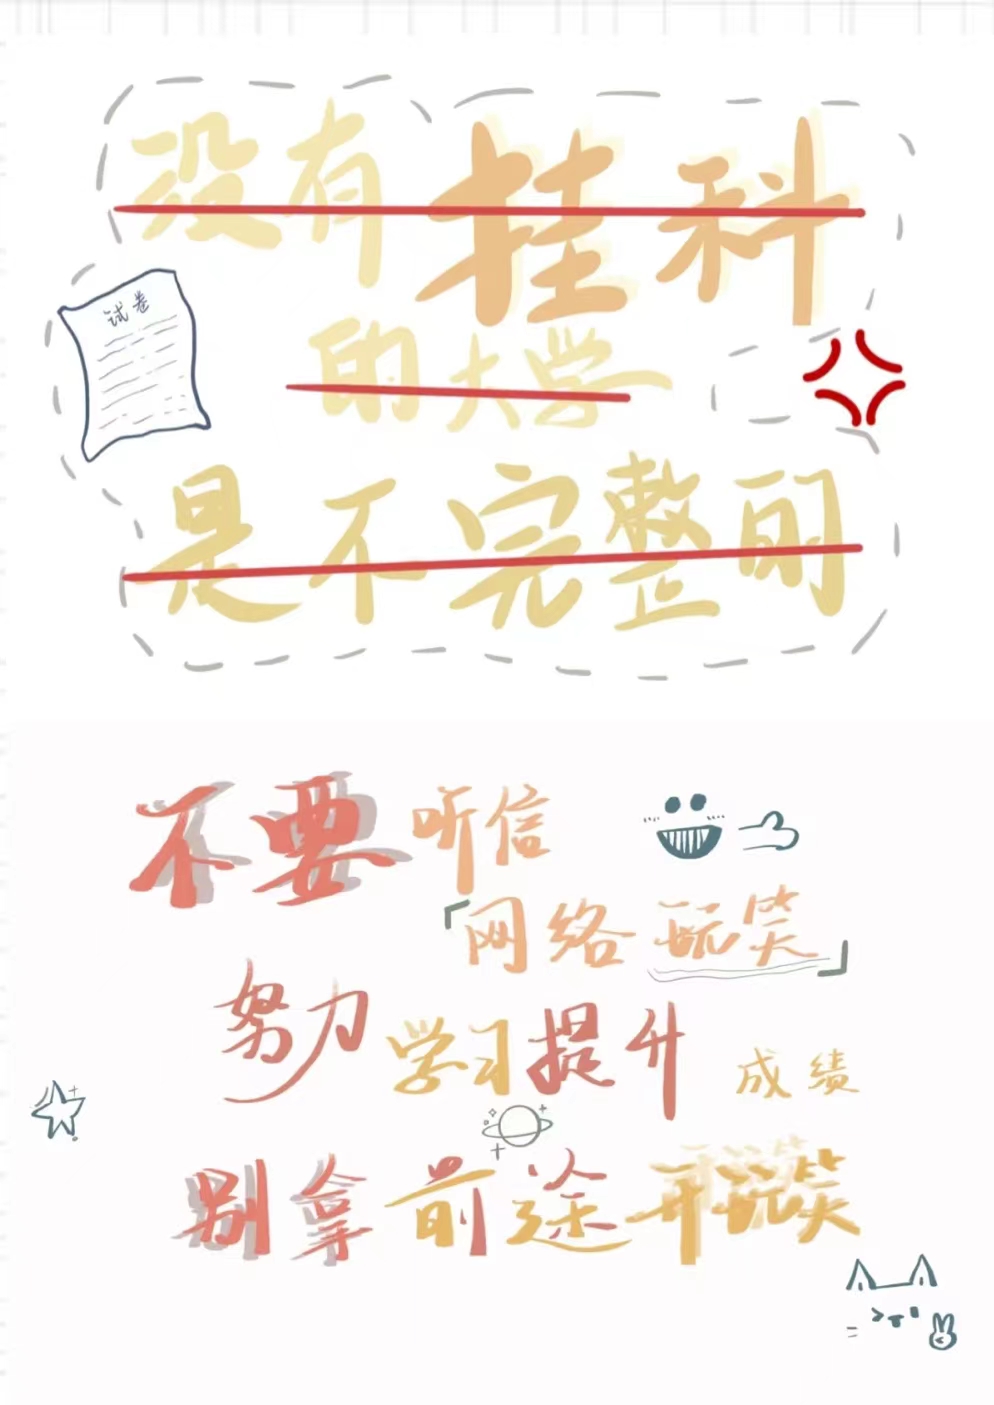 没有挂科
试卷
的大学
是不完整的
不要听信
「网络玩笑」
努力学习提升成绩
别拿前途开玩笑